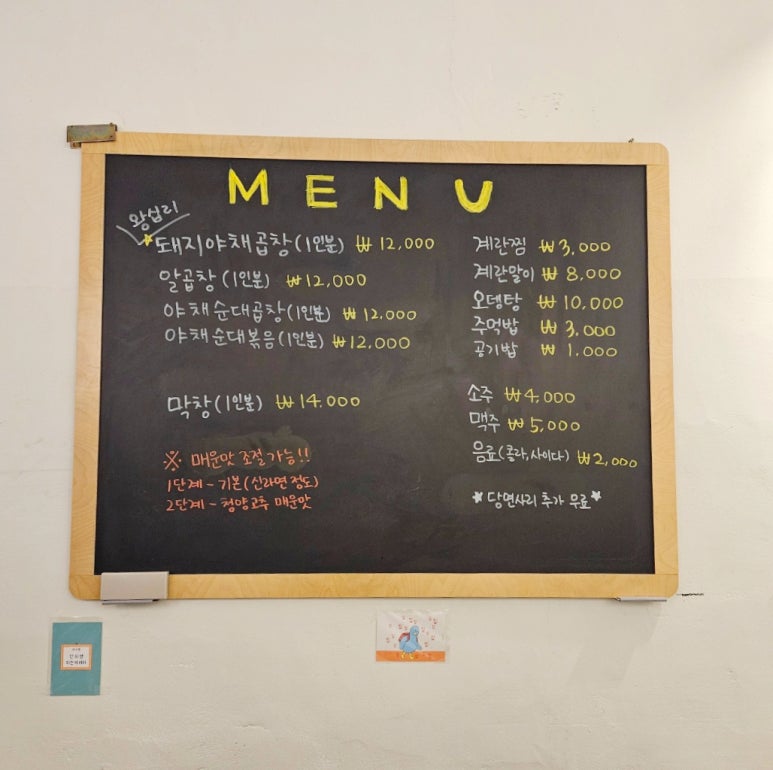 MENU
왕십리
돼지야채곱창(1인분) ₩12,000
알곱창(1인분) ₩12,000
야채순대곱창(1인분) ₩12,000
야채순대볶음(1인분) ₩12,000
막창(1인분) ₩14,000
※ 매운맛 조절가능!!
1단계 - 기본(신라면 정도)
2단계 - 청양고추 매운맛
계란찜 ₩3,000
계란말이 ₩8,000
오뎅탕 ₩10,000
주먹밥 ₩3,000
공기밥 ₩1,000
소주 ₩4,000
맥주 ₩5,000
음료(콜라,사이다) ₩2,000
★당면사리 추가 무료★